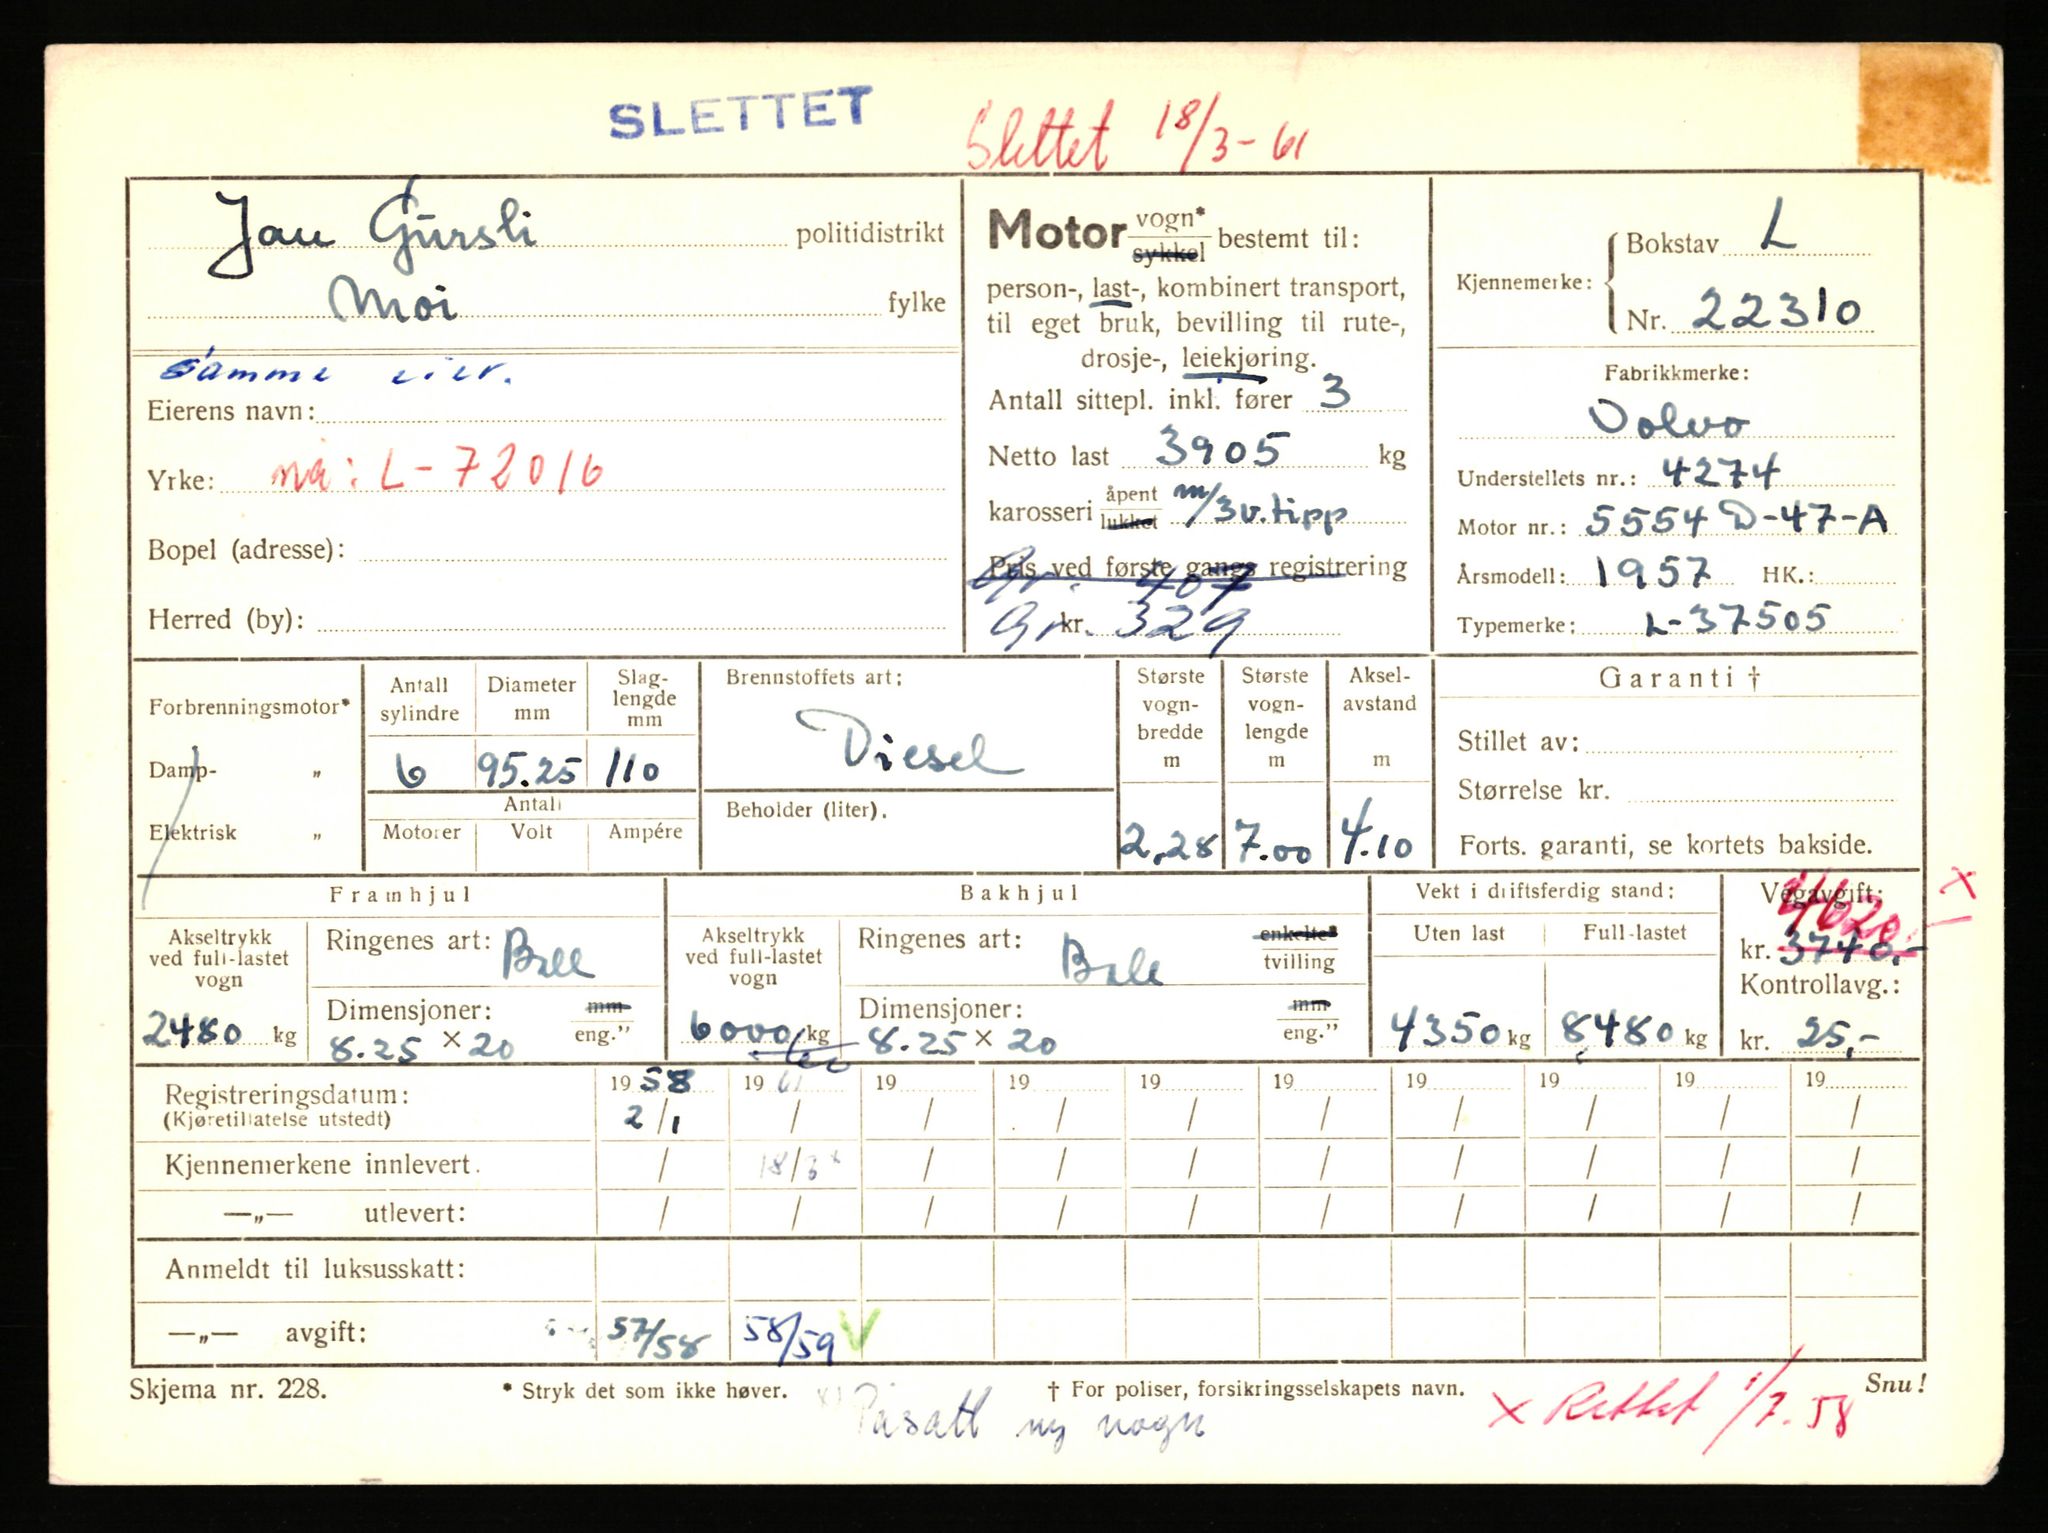 SLETTET
Slettet 18/3-61
Jan Gursli politidistrikt
Moi fylke
samme eier.
Eierens navn:
Yrke: nå: L-72016
Bopel (adresse):
Herred (by):
Motor vogn* sykkel bestemt til:
person-, last-, kombinert transport,
til eget bruk, bevilling til rute-,
drosje-, leiekjøring.
Antall sittepl. inkl. fører 3
Netto last 3905 kg
karosseri åpent lukket m/3v.tipp
Pris ved første gangs registrering
Gr. 407
Gr. kr. 329
Kjennemerke: Bokstav L
Nr. 22310
Fabrikkmerke:
Volvo
Understellets nr.: 4274
Motor nr.: 5554 D-47-A
Årsmodell: 1957 HK.:
Typemerke: L-37505
Forbrenningsmotor*
Damp- „
Elektrisk „
Antall sylindre
Diameter mm
Slaglengde mm
6 95.25 110
Antall
Motorer Volt Ampére
Brennstoffets art:
Diesel
Beholder (liter).
Største vognbredde m
2,28
Største vognlengde m
7.00
Akselavstand m
4.10
Garanti †
Stillet av:
Størrelse kr.
Forts. garanti, se kortets bakside.
Framhjul
Akseltrykk ved full-lastet vogn
2480 kg
Ringenes art:
Dimensjoner: mm eng."
8.25 × 20
Bakhjul
Akseltrykk ved full-lastet vogn
6000 kg
Ringenes art: enkelte* tvilling
Dimensjoner: mm eng."
8.25 × 20
Vekt i driftsferdig stand:
Uten last Full-lastet
4350 kg 8480 kg
Vegavgift:
4620,- x
kr. 3740,-
Kontrollavg.:
kr. 25,-
Registreringsdatum: 1958 1961 19 19 19 19 19 19 19 19
(Kjøretillatelse utstedt) 2/1 / / / / / / / / /
Kjennemerkene innlevert. / 18/3 x / / / / / / / /
—„— utlevert: / / / / / / / / / /
Anmeldt til luksusskatt:
—„— avgift: 57/58 58/59 V
Skjema nr. 228. * Stryk det som ikke høver. † For poliser, forsikringsselskapets navn. Snu!
x) Påsatt ny vogn
x Rettet 1/7.58